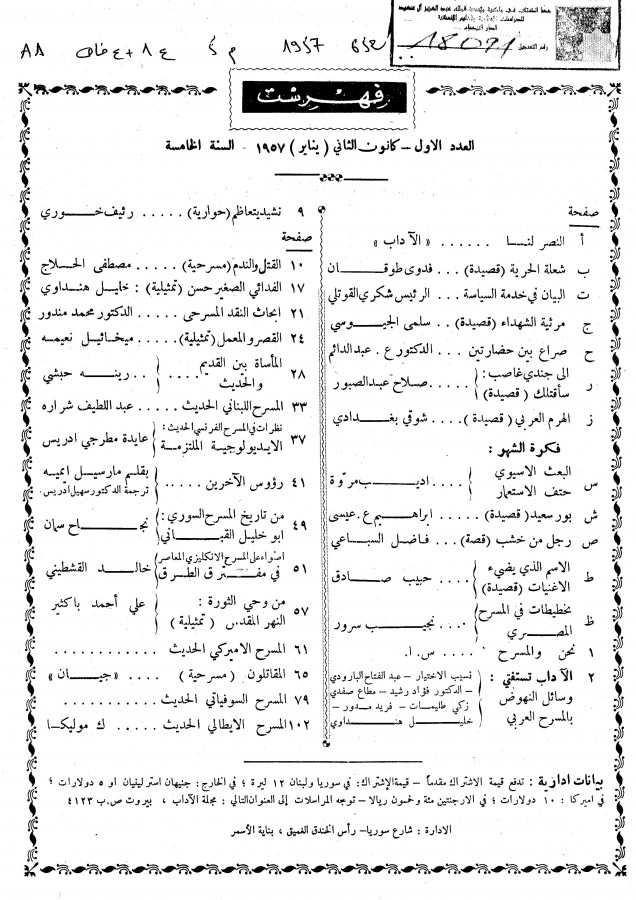 رقم التسجيل
18071
1957
فهرست
العدد الاول - كانون الثاني ( يناير ) ١٩٥٧ - السنة الخامسة
صفحة
أ النصر لنا ...... «الآداب»
ب شعلة الحرية (قصيدة) ... فدوى طوقان
ت البيان في خدمة السياسة .. الرئيس شكري القوتلي
ج مرثية الشهداء ( قصيدة ) .. سلمى الجيوسي
ح صراع بين حضارتين ... الدكتور ع. عبد الدائم
ر الى جندي غاصب :
سأقتلك ( قصيدة ) ..... صلاح عبد الصبور
ز الهرم العربي ( قصيدة ) .... شوقي بغدادي
فكرة الشهر :
س البعث الاسيوي
حتف الاستعمار .... اديب مروّة
ش بور سعيد ( قصيدة ) .... ابراهيم ع. عيسى
ص رجل من خشب ( قصة ) .. فاضل السباعي
ط الاسم الذي يضيء
الاغنيات ( قصيدة ) .... حبيب صادق
ظ تخطيطات في المسرح
المصري .... نجيب سرور
١ نحن والمسرح ..... س . ا .
٢ الآداب تستفتي :
وسائل النهوض
بالمسرح العربي
نسيب الاختيار - عبد الفتاح البارودي
- الدكتور فؤاد رشيد - مطاع صفدي
زكي طليمات - فريد مدور -
خليل هنداوي
٩ نشيد يتعاظم ( حوارية ) ..... رئيف خوري
صفحة
١٠ القتل والندم ( مسرحية ) ..... مصطفى الحلاج
١٧ الفدائي الصغير حسن ( تمثيلية ) : خليل هنداوي
٢١ ابحاث النقد المسرحي .. الدكتور محمد مندور
٢٤ القصر والمعمل ( تمثيلية ) ... ميخائيل نعيمه
٢٨ المأساة بين القديم
والحديث .... رينه حبشي
٣٣ المسرح اللبناني الحديث ... عبد اللطيف شراره
٣٧ نظرات في المسرح الفرنسي الحديث :
الايديولوجية الملتزمة عايدة مطرجي ادريس
٤١ رؤوس الآخرين .....
بقلم مارسيل ايميه
ترجمة الدكتور سهيل ادريس
٤٩ من تاريخ المسرح السوري :
ابو خليل القباني نجاح سمان
٥١ اضواء على المسرح الانكليزي المعاصر
في مفترق الطرق خالد القشطيني
٥٧ من وحي الثورة :
النهر المقدس ( تمثيلية ) علي أحمد باكثير
٦١ المسرح الاميركي الحديث ............
٦٥ المقاتلون ( مسرحية ) ..... «جيان»
٧٩ المسرح السوفياتي الحديث ..........
١٠٢ المسرح الايطالي الحديث .... ك موليكا
بيانات ادارية : تدفع قيمة الاشتراك مقدماً - قيمة الإشتراك: في سوريا ولبنان ١٢ ليرة ؛ في الخارج: جنيهان استرلينيان او ٥ دولارات ؛
في اميركا : ١٠ دولارات ؛ في الارجنتين مئة وخمسون ريالا - توجه المراسلات إلى العنوان التالي : مجلة الآداب ، بيروت ص.ب ٤١٢٣
الادارة : شارع سوريا - رأس الخندق الغميق ، بناية الأسمر